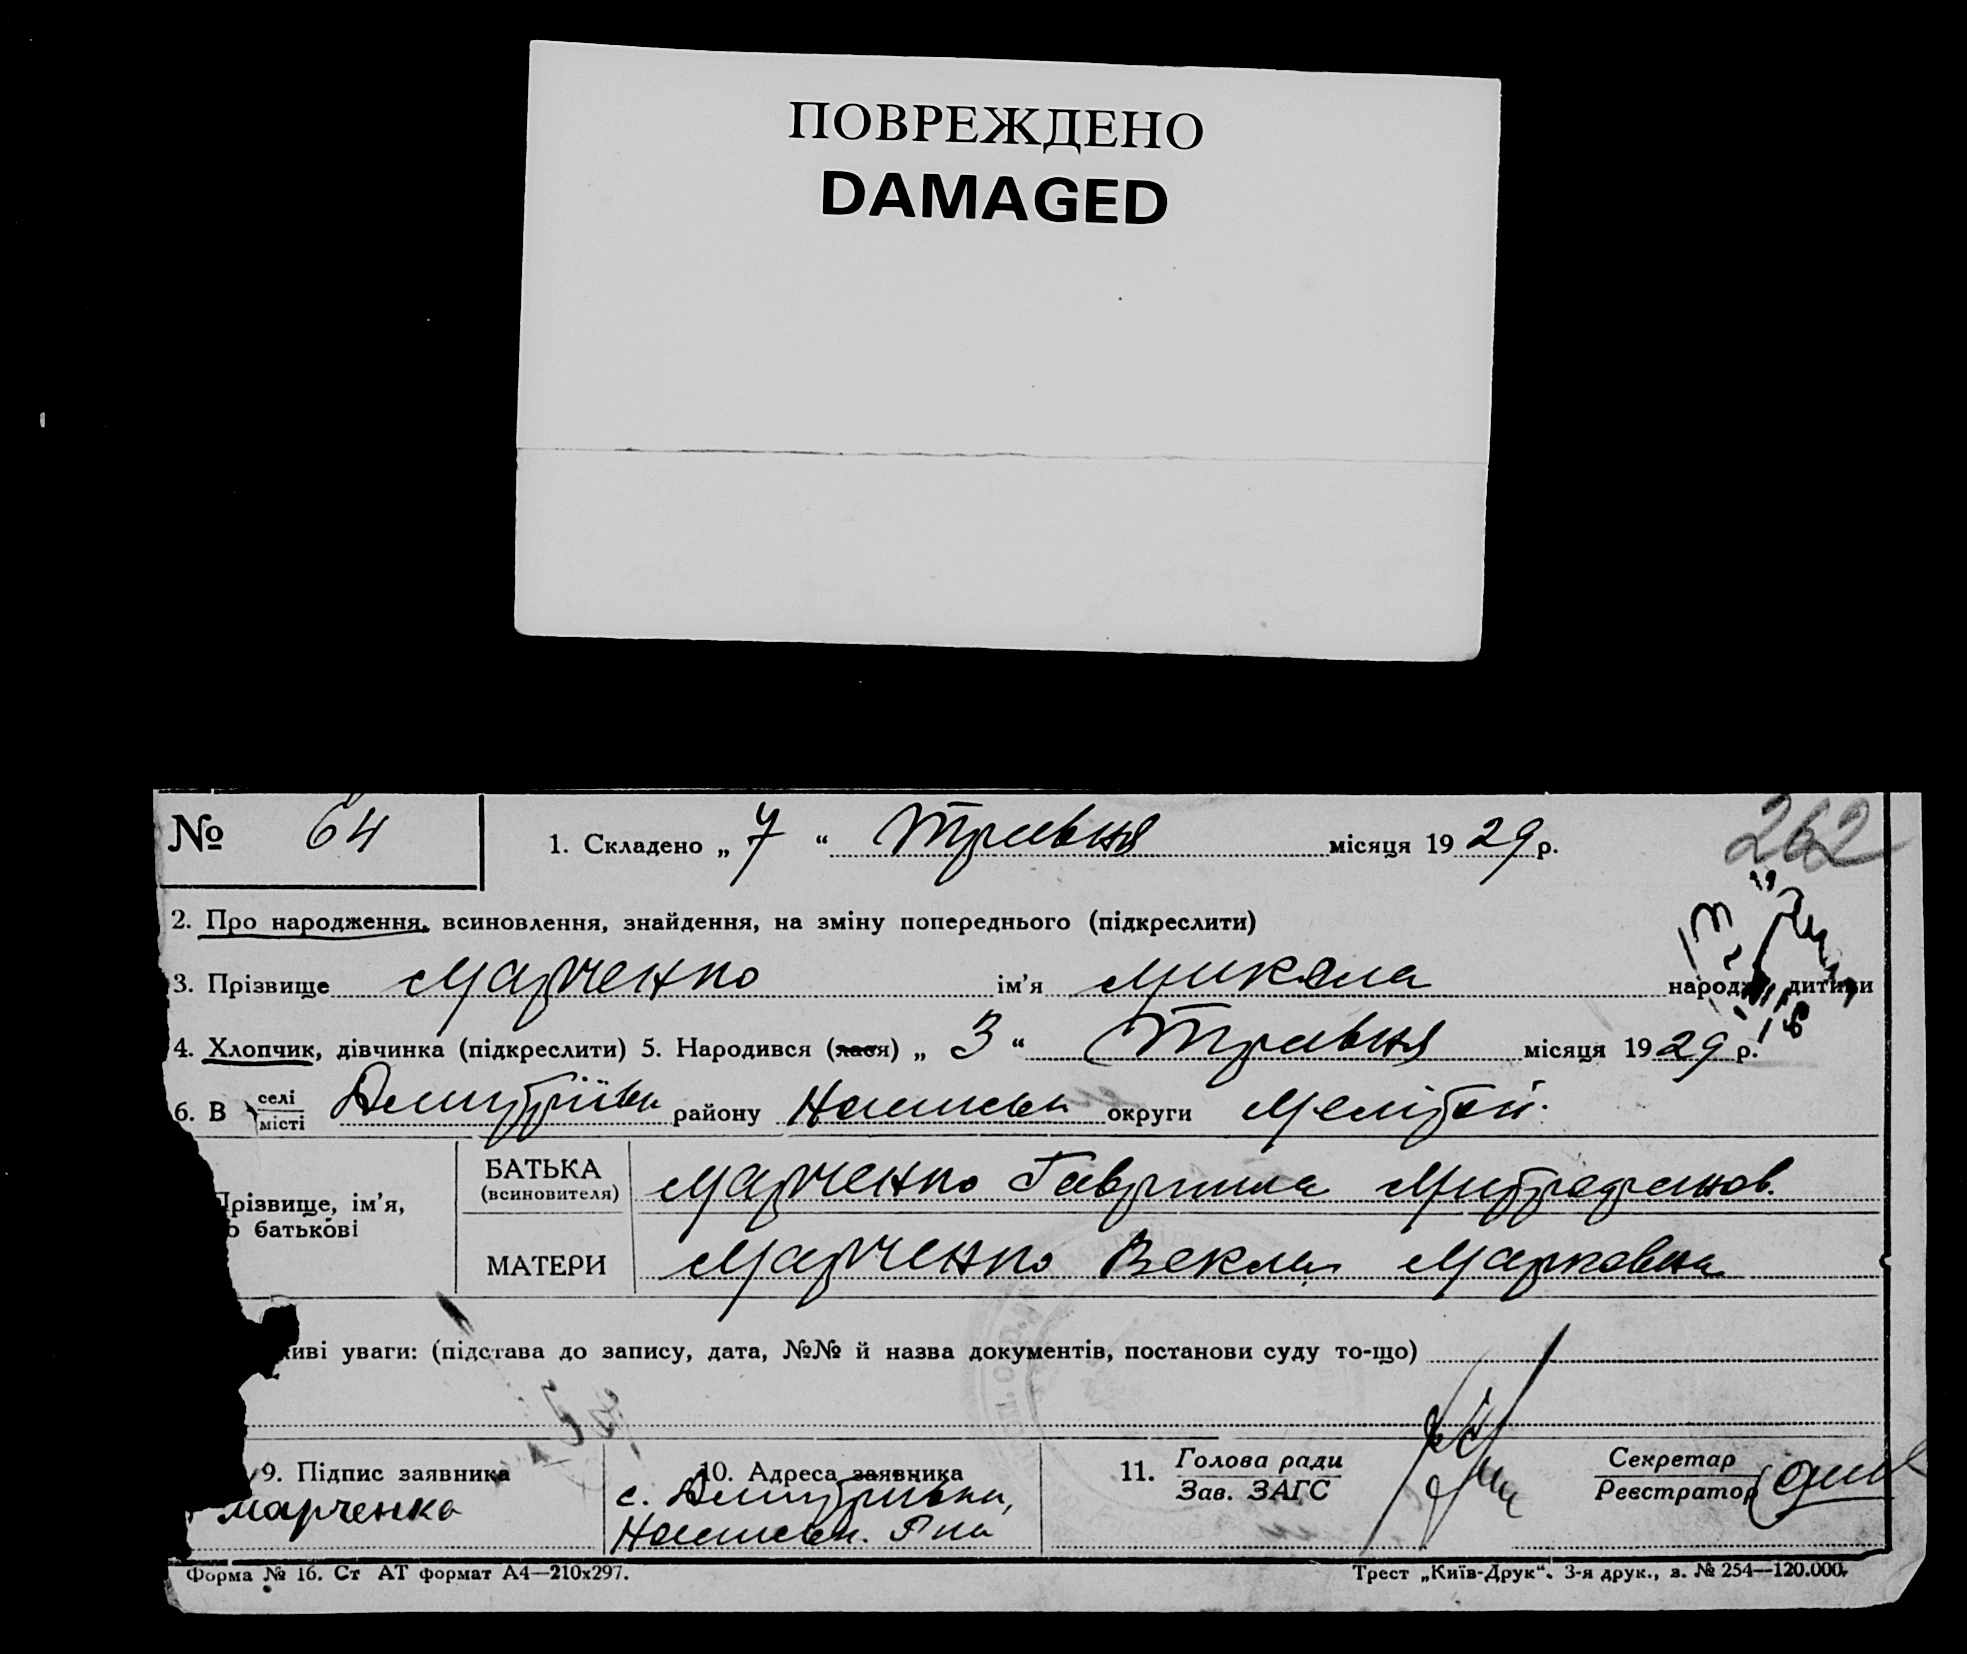 ПОВРЕЖДЕНО
DAMAGED
№ 64
1. Складено „ 7 “ Травня місяця 1929 р.
262
2. Про народження, всиновлення, знайдення, на зміну попереднього (підкреслити)
3. Прізвище Марченко ім'я Микола народж. дитини
4. Хлопчик, дівчинка (підкреслити) 5. Народився (лася) „ 3 “ Травня місяця 1929 р.
6. В селі місті Дмитріївк району округи Меліт
Прізвище, ім'я, по батькові
БАТЬКА (всиновителя) Марченко Гаврила Митрофанов.
МАТЕРИ Марченко Векла Марковна
ливі уваги: (підстава до запису, дата, №№ й назва документів, постанови суду то-що)
9. Підпис заявника
Марченко
10. Адреса заявника
с. Дмитрівка,
11. Голова ради
Зав. ЗАГС
Секретар
Реєстратор
Форма № 16. Ст АТ формат А4—210x297.
Трест „Київ-Друк“. 3-я друк., з. № 254—120.000.